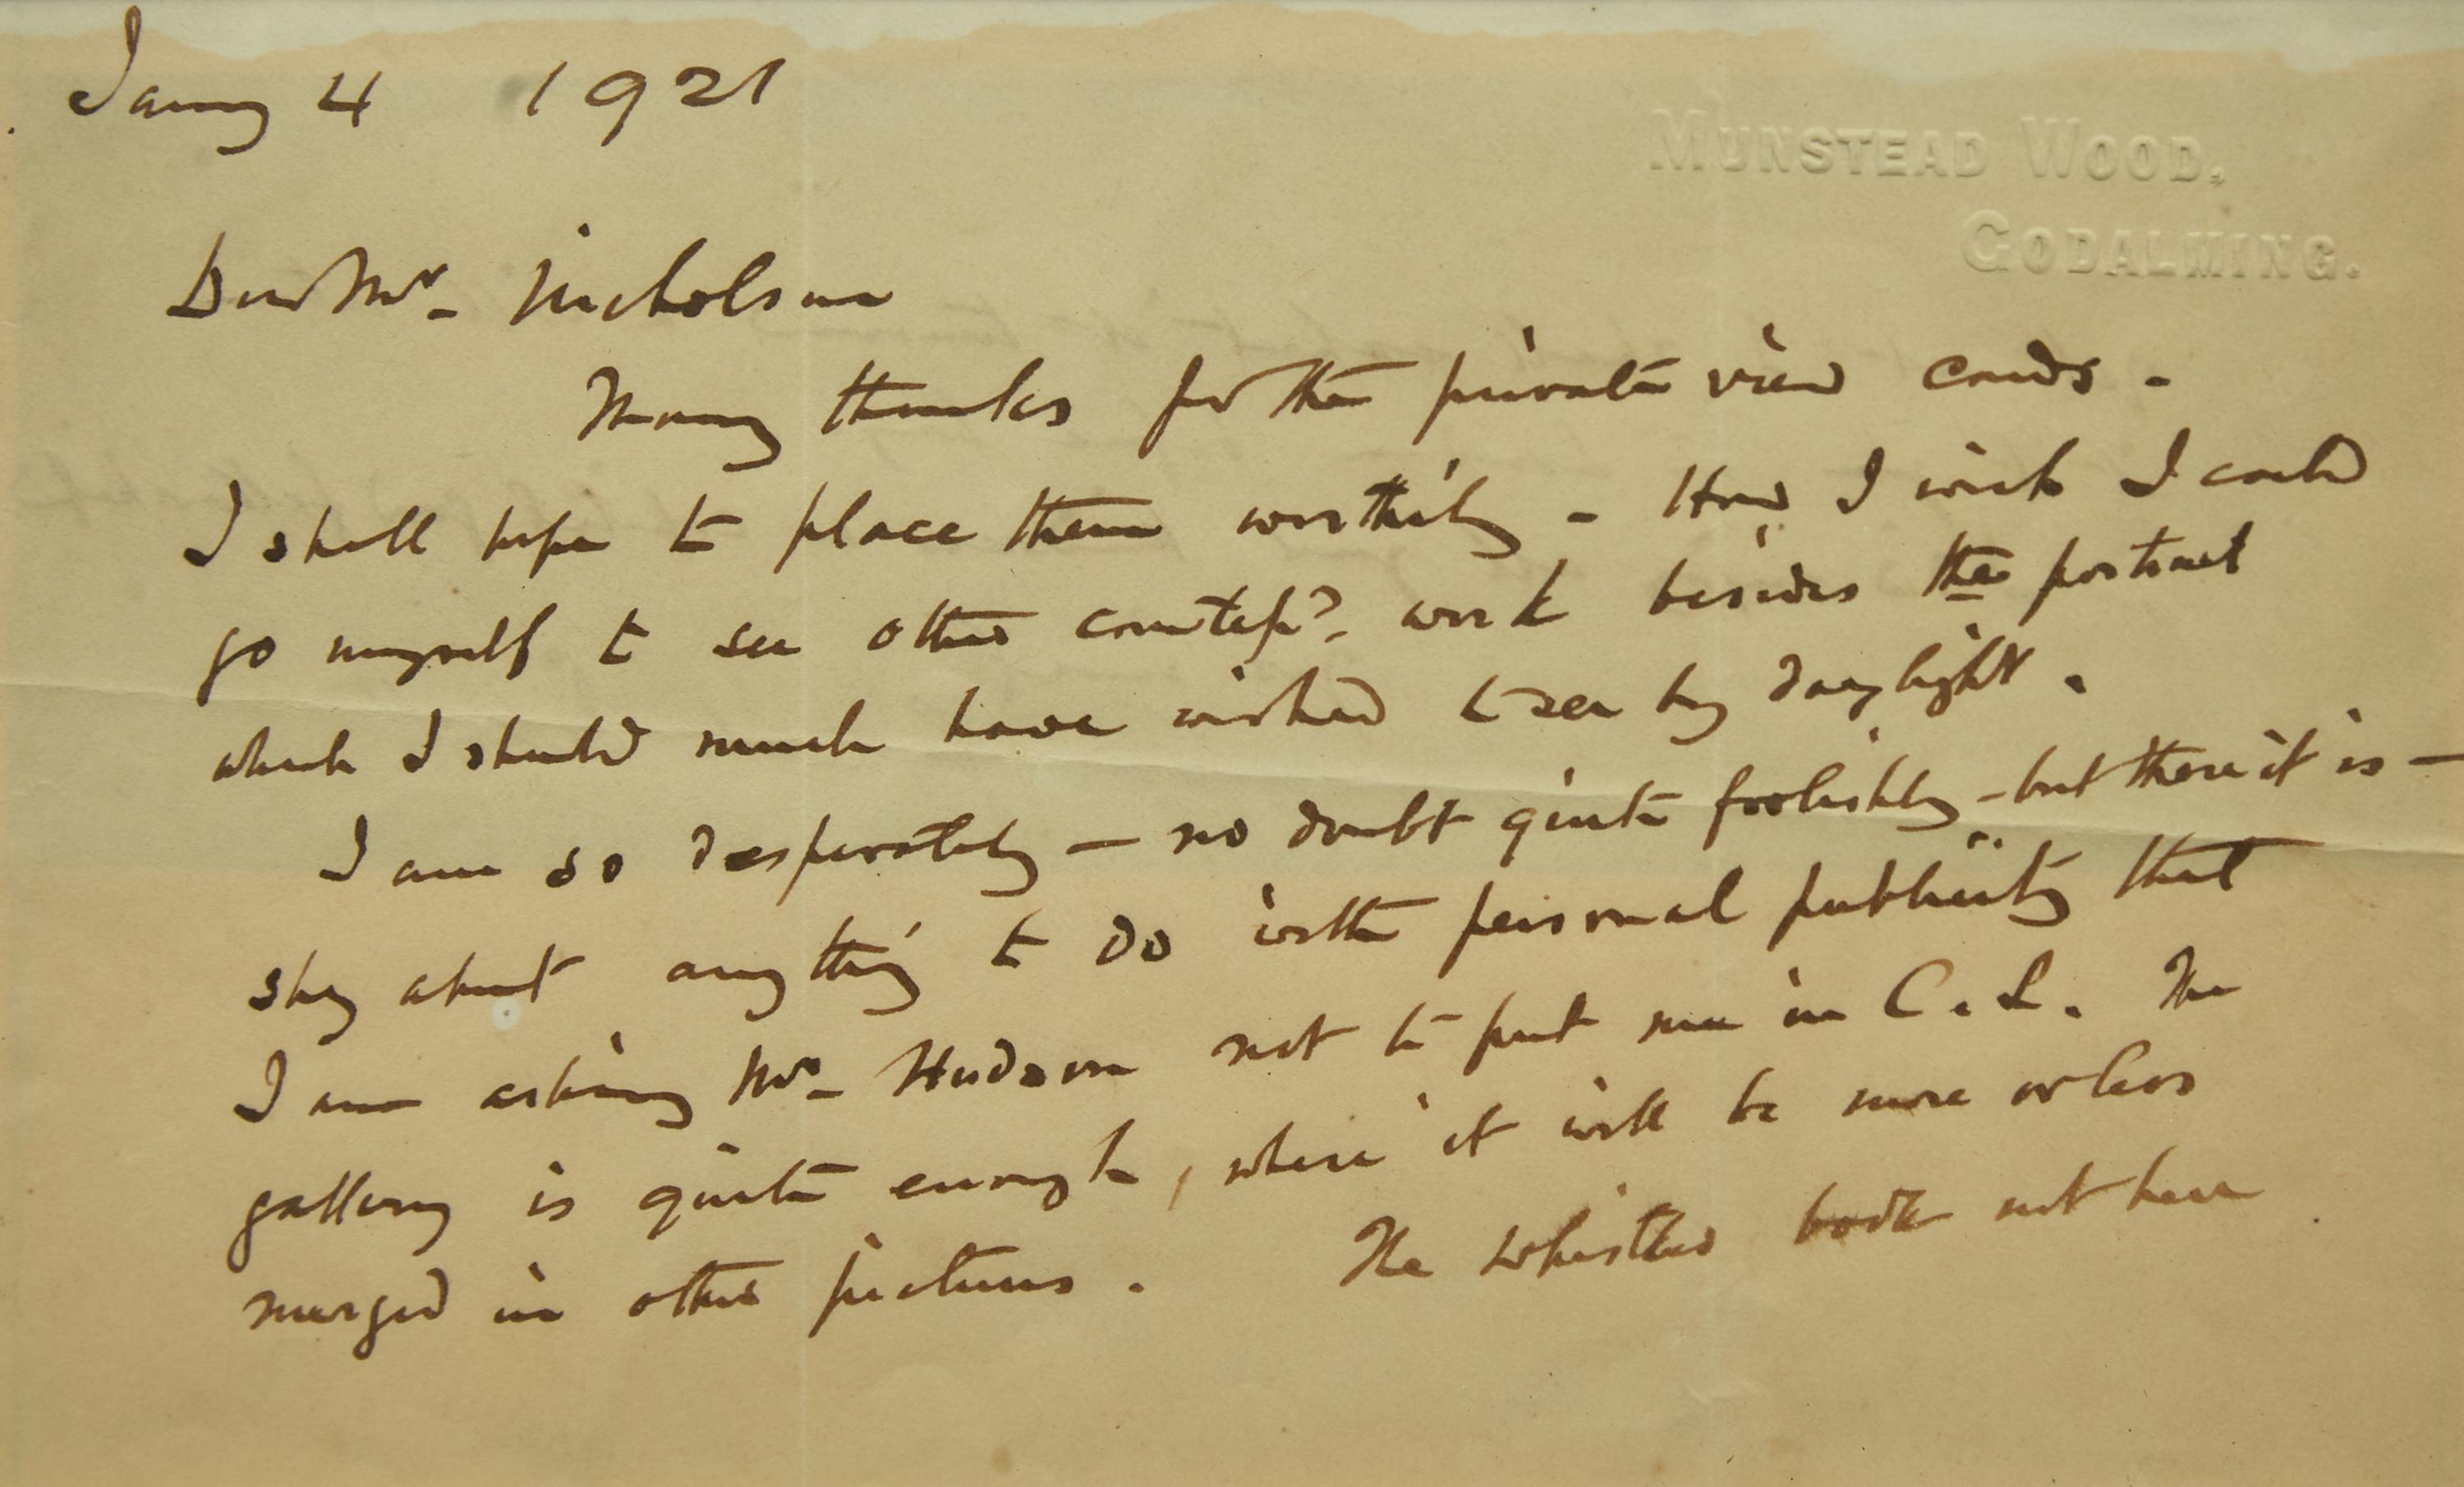 Jany 4 1921
MUNSTEAD WOOD.
GODALMING.
Dear Mr. Nicholson
Many thanks for the private view cards -
I shall hope to place them worthily - How I wish I could
go myself to see other work besides the portrait
which I should much have wished to see by daylight.
I am so desperately - no doubt quite foolishly - but there it is -
shy about anything to do with personal publicity that
I am asking Mr. Hudson not to put me in C. L. The
gallery is quite enough, where it will be more or less
merged in other pictures. The Whistler book not here